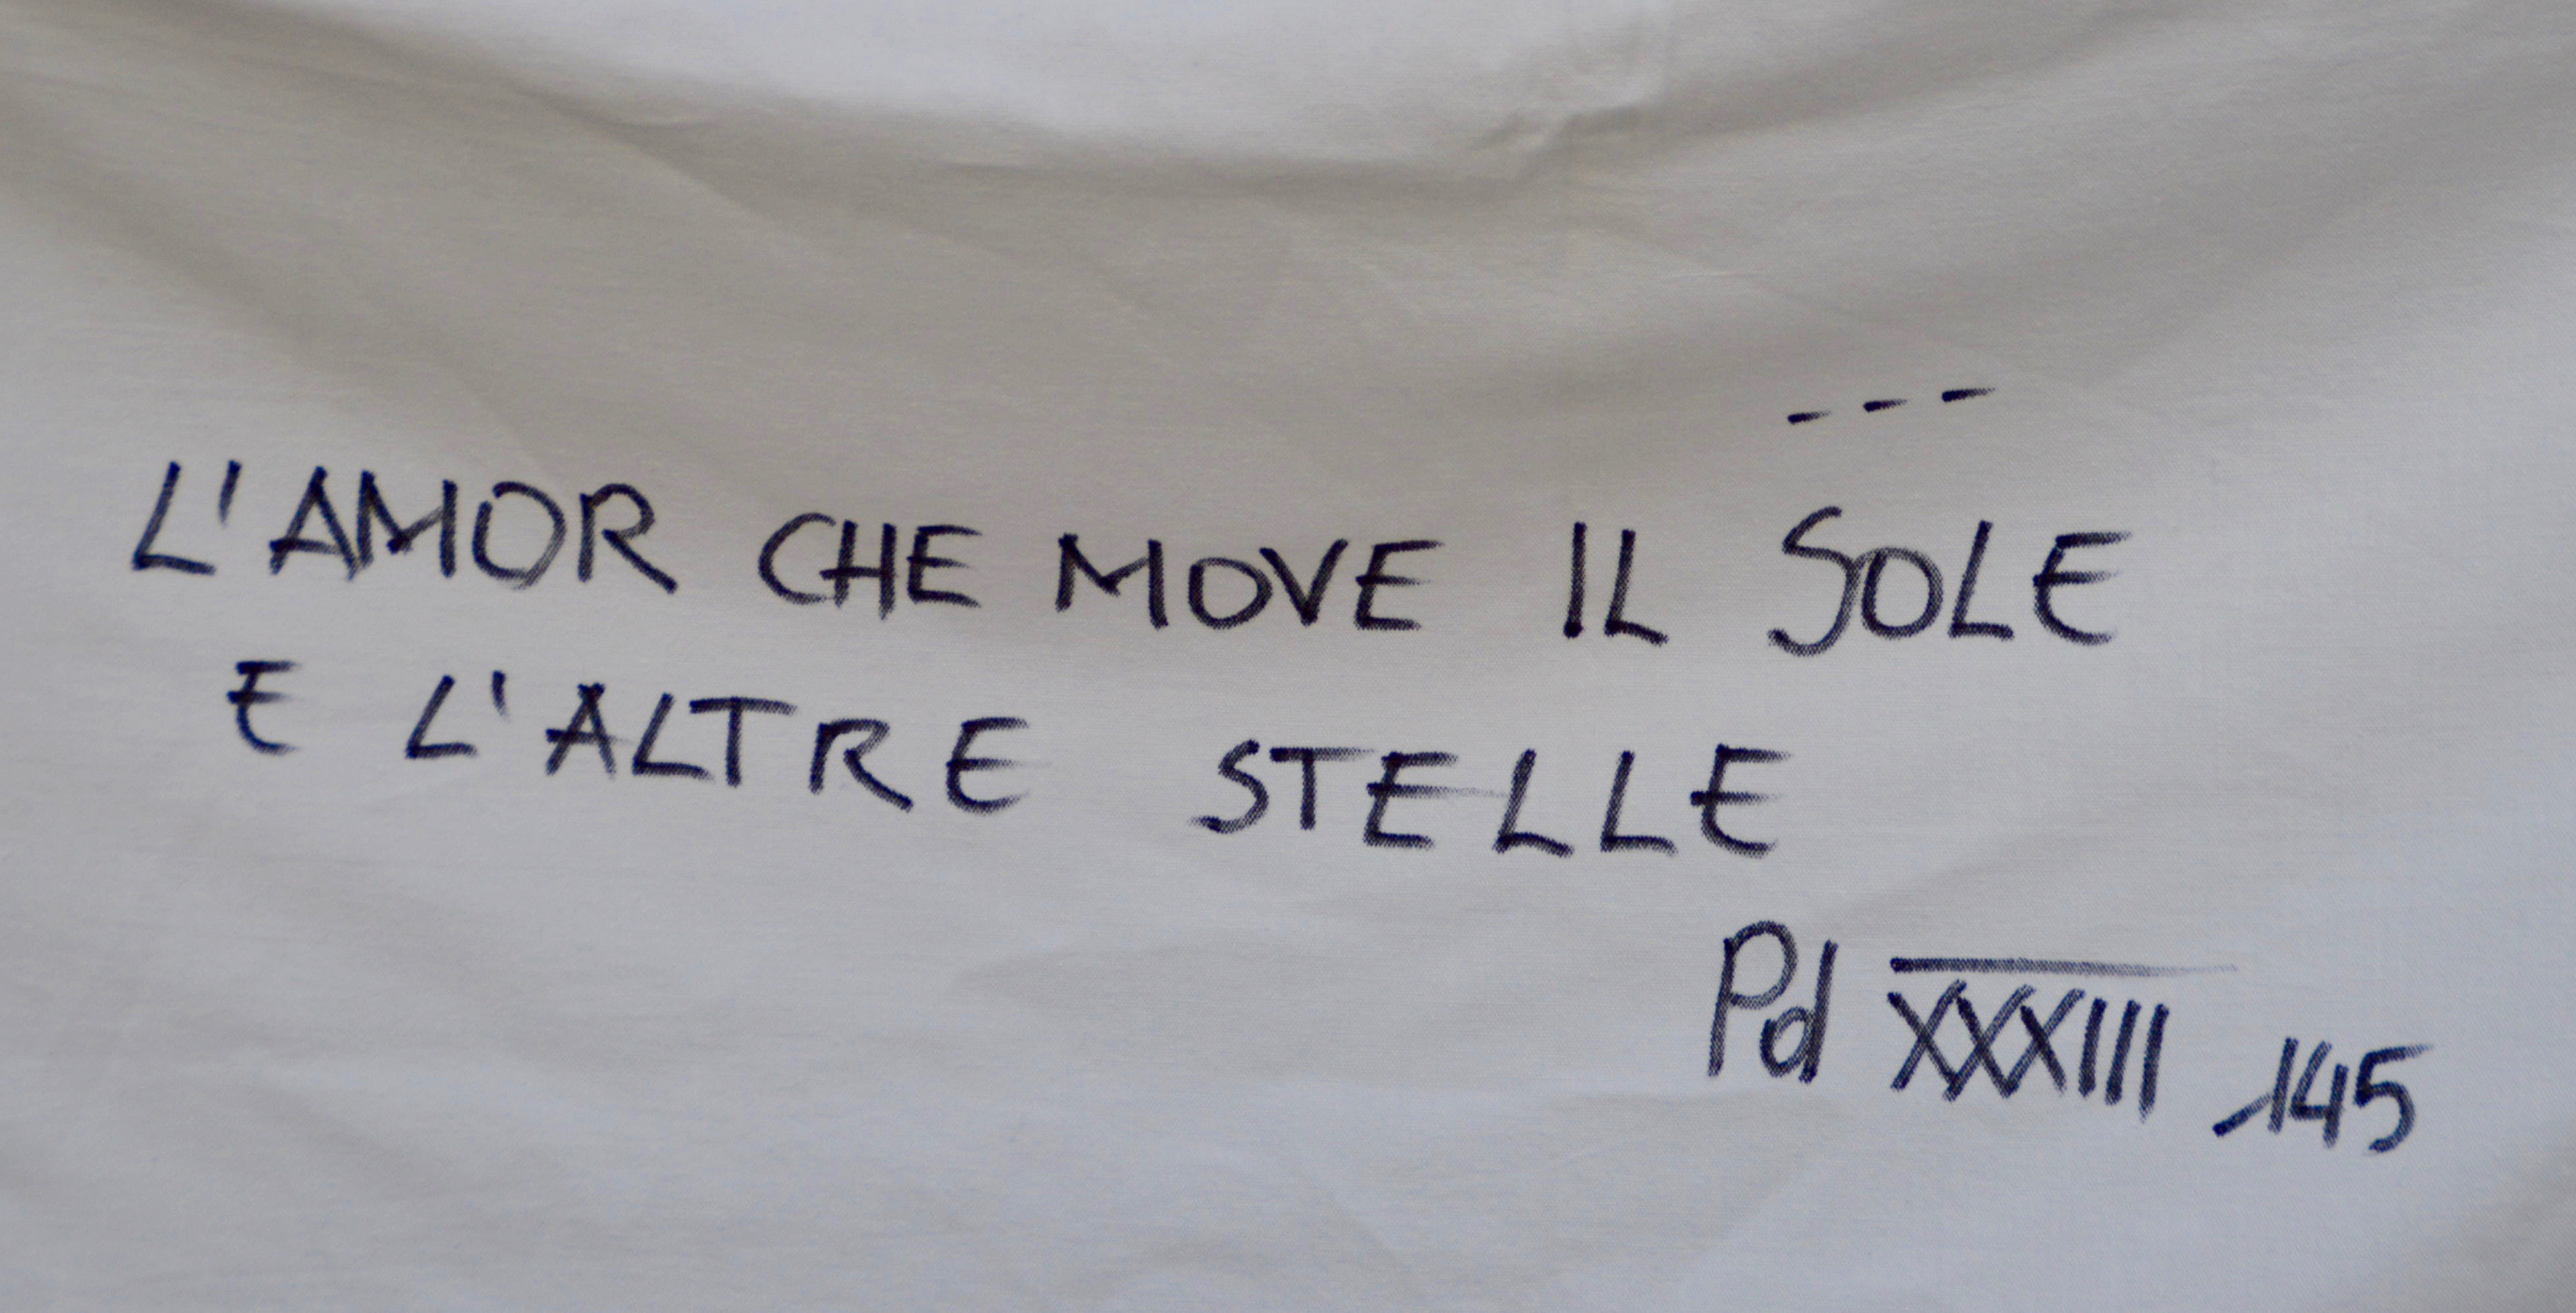 ---
L'AMOR CHE MOVE IL SOLE
E L'ALTRE STELLE
Pd XXXIII, 145